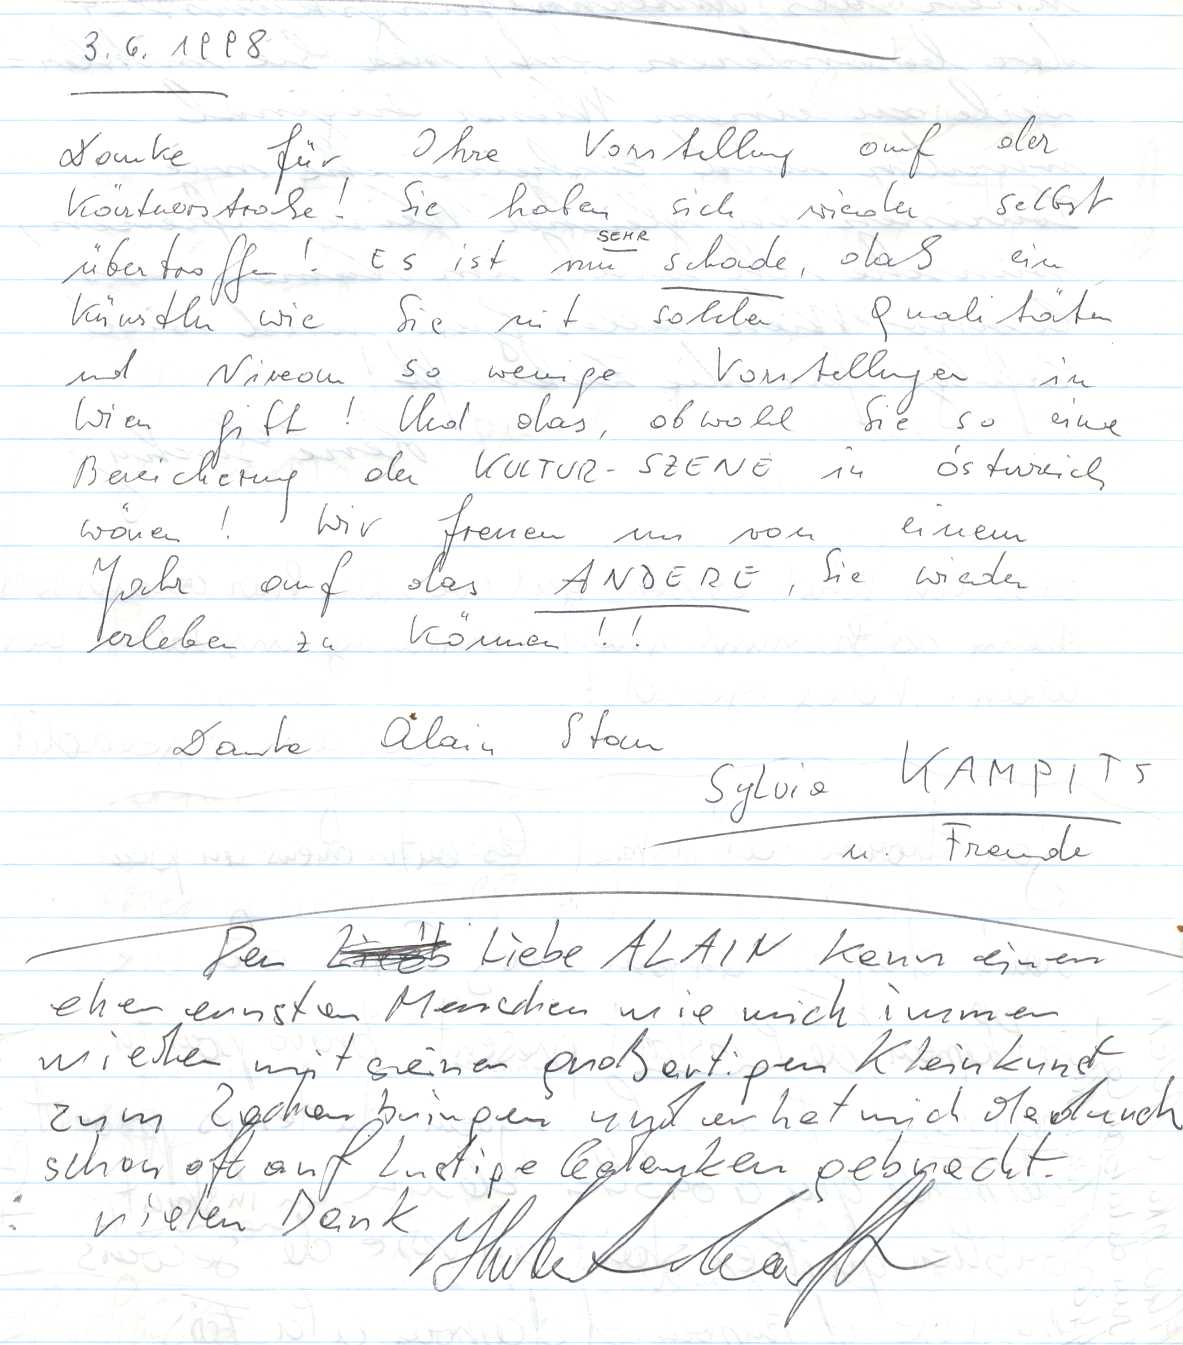 3. 6. 1998
Danke für Ihre Vorstellung auf der
Kärtnerstraße! Sie haben sich wieder selbst
übertroffen! Es ist nur SEHR schade, daß ein
Künstler wie Sie mit solchen Qualitäten
und Niveau so wenige Vorstellungen in
Wien gibt! Und das, obwohl Sie so eine
Bereicherung der KULTUR-SZENE in Österreich
wären! Wir freuen uns von einem
Jahr auf das ANDERE, Sie wieder
erleben zu können!!
Danke Alain Stau
Sylvia KAMPITS
u. Freunde
Der Liebe ALAIN kann einen
eher ernsten Menschen wie mich immer
wieder mit seiner großartigen Kleinkunst
zum Lachen bringen und er hat mich dadurch
schon oft auf lustige Gedanken gebracht.
vielen Dank